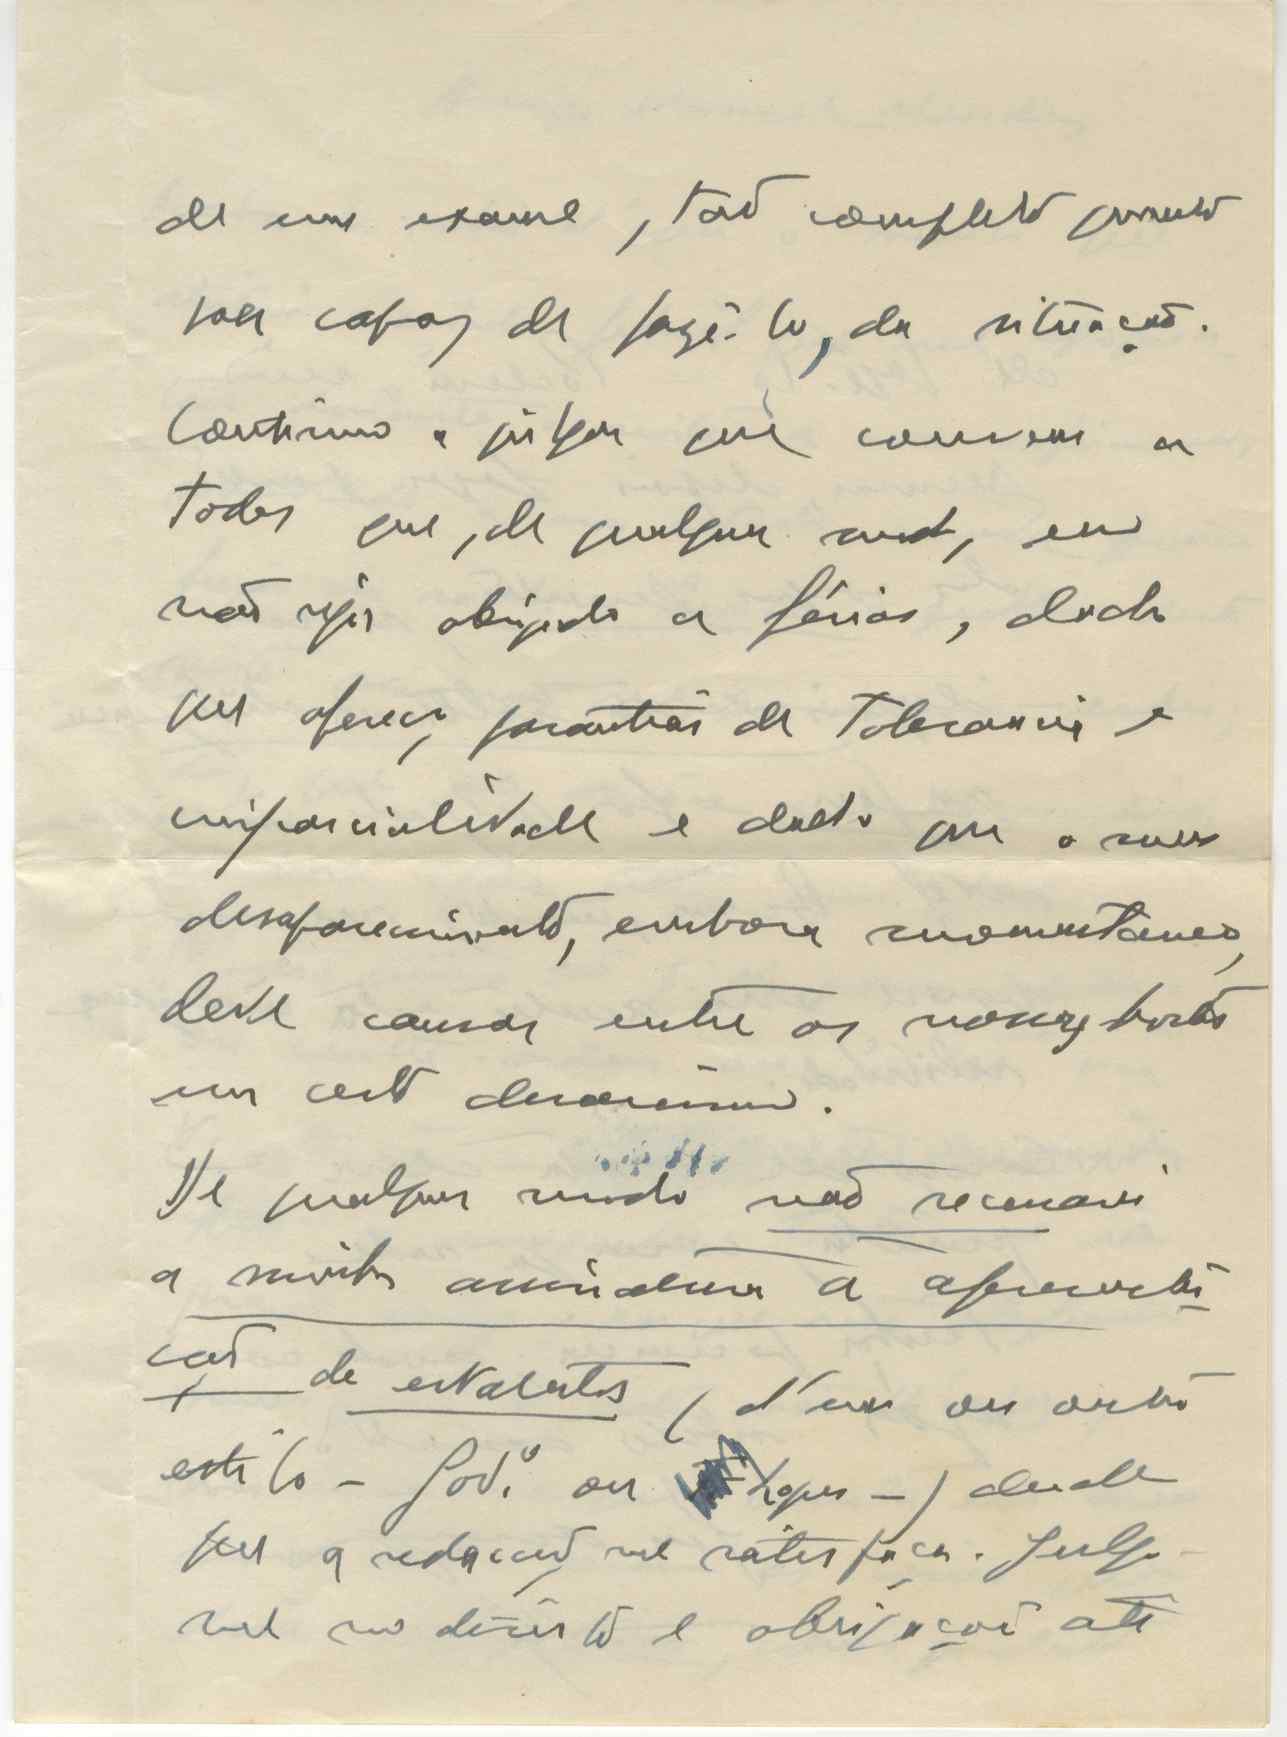 de um exame, tão completo quanto
sou capaz de fazê-lo, da situação.
Continuo a julgar que convem a
todos que, de qualquer modo, eu
não seja obrigado a férias, dado
que ofereço garantias de tolerancia e
imparcialidade e dado que o meu
desaparecimento, embora momentaneo,
deve causar entre os nossos
um certo desanimo.
De qualquer modo não recusarei
a minha assinatura à apresenta-
ção de estatutos (d'um ou outro
estilo – God.º ou – ) desde
que a redacção me satisfaça. Julgo-
me no direito e obrigação até